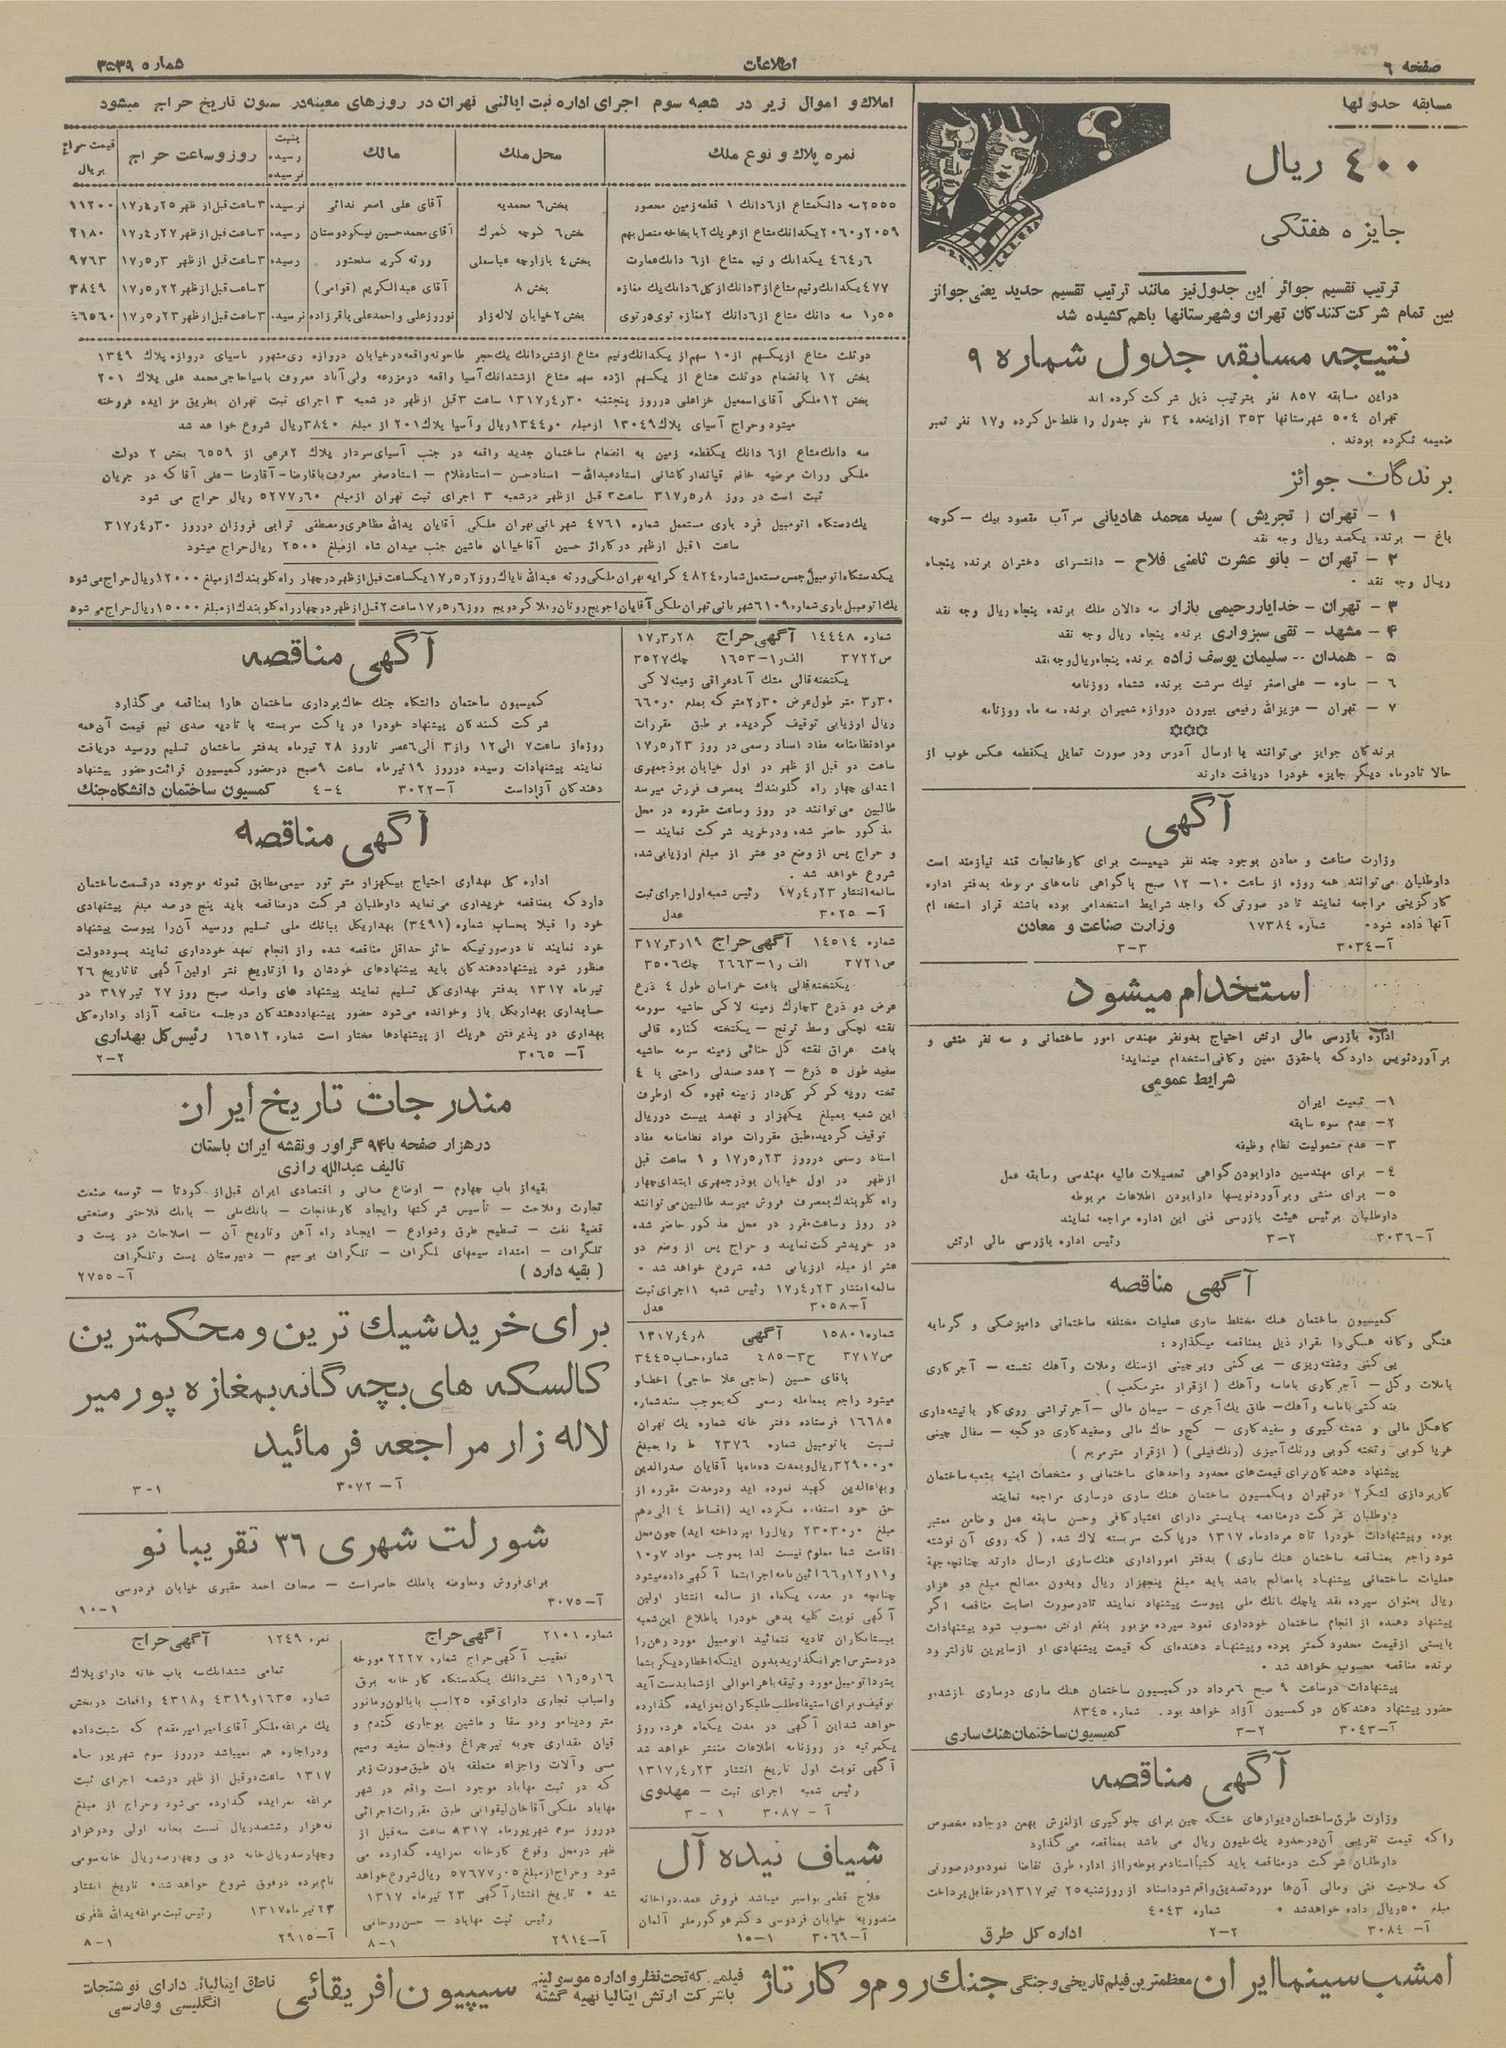 صفحه ۶
اطلاعات
شماره ۳۵۳۹
مسابقه جدولها
۴۰۰ ریال
جایزه هفتگی
ترتیب تقسیم جوائز این جدول نیز مانند ترتیب تقسیم جدید یعنی جوائز
بین تمام شرکت کنندگان تهران و شهرستانها باهم کشیده شد
نتیجه مسابقه جدول شماره ۹
دراین مسابقه ۸۵۷ نفر بترتیب ذیل شرکت کرده اند
تهران ۵۰۴ شهرستانها ۳۵۳ ازاینعده ۳۴ نفر جدول را غلط حل کرده و۱۷ نفر تمبر
ضمیمه نکرده بودند .
برندگان جوائز
۱ – تهران ( تجریش ) سید محمد هادیانی سرآب مقصود بیك – کوچه
باغ – برنده یکصد ریال وجه نقد
۲ – تهران – بانو عشرت ثامنی فلاح – دانشسرای دختران برنده پنجاه
ریال وجه نقد .
۳ – تهران – خدایاررحیمی بازار سه دالان ملك برنده پنجاه ریال وجه نقد
۴ – مشهد – تقی سبزواری برنده پنجاه ریال وجه نقد
۵ – همدان -- سلیمان یوسف زاده برنده پنجاه ریال وجه نقد
۶ – ساوه – علی اصغر نیك سرشت برنده ششماه روزنامه
۷ – تهران – عزیزالله رفیعی بیرون دروازه شمیران برنده سه ماه روزنامه
برندگان جوایز می‌توانند با ارسال آدرس ودر صورت تمایل یکقطعه عکس خوب از
حالا تادوماه دیگر جایزه خودرا دریافت دارند
آگهی
وزارت صناعت و معادن بوجود چند نفر شیمیست برای کارخانجات قند نیازمند است
داوطلبان می‌توانند همه روزه از ساعت ۱۰– ۱۲ صبح باگواهی نامه‌های مربوطه بدفتر اداره
کارگزینی مراجعه نمایند تا در صورتی که واجد شرایط استخدامی بوده باشند قرار استخدام
آنها داده شود. شماره ۱۷۳۸۴ وزارت صناعت و معادن
آ–۳۰۳۴ ۳–۳
استخدام میشود
اداره بازرسی مالی ارتش احتیاج بدونفر مهندس امور ساختمانی و سه نفر منشی و
برآوردنویس دارد که باحقوق معین وکافی استخدام مینماید:
شرایط عمومی
۱– تبعیت ایران
۲– عدم سوء سابقه
۳– عدم مشمولیت نظام وظیفه
۴– برای مهندسین دارابودن گواهی تحصیلات عالیه مهندسی وسابقه عمل
۵– برای منشی وبرآوردنویسها دارابودن اطلاعات مربوطه
داوطلبان برئیس هیئت بازرسی فنی این اداره مراجعه نمایند
آ–۳۰۳۶ ۲–۳ رئیس اداره بازرسی مالی ارتش
آگهی مناقصه
کمیسیون ساختمان هنك مختلط ساری عملیات مختلفه ساختمانی دامپزشکی و گرمابه
هنگی وکافه هنگی را بقرار ذیل بمناقصه میگذارد :
پی کنی وشفته ریزی – پی کنی وپی چینی ازسنك وملات وآهك نشسته – آجرکاری
باملات وگل – آجر کاری باماسه وآهك ( ازقرار متر مکعب )
بندکشی باماسه وآهك– طاق یك آجری – سیمان مالی –آجرتراشی روی کار باتیشه داری
کاهگل مالی و شمشه گیری و سفید کاری – گچ و خاك مالی وسفیدکاری دوگچه – سفال چینی
خرپا کوبی وتخته کوبی ورنك آمیزی (رنك فیلی) ( ازقرار متر مربع )
پیشنهاد دهندگان برای قیمت‌های محدود واحدهای ساختمانی و مشخصات ابنیه بشعبه ساختمان
کارپردازی لشگر۲ درتهران وبکمسیون ساختمان هنك ساری درساری مراجعه نمایند
داوطلبان شرکت درمناقصه بایستی دارای اعتبارکافی وحسن سابقه عمل وضامن معتبر
بوده وپیشنهادات خودرا تا۵ مردادماه ۱۳۱۷ درپاکت سربسته لاك شده ( که روی آن نوشته
شود راجع بمناقصه ساختمان هنك ساری ) بدفتر امور اداری هنك ساری ارسال دارند چنانچه جهة
عملیات ساختمانی پیشنهاد بامصالح باشد باید مبلغ پنجهزار ریال وبدون مصالح مبلغ دو هزار
ریال بعنوان سپرده نقد یاچك بانك ملی پیوست پیشنهاد نمایند تادرصورت اصابت مناقصه اگر
پیشنهاد دهنده از انجام ساختمان خودداری نمود سپرده مزبور بنفع ارتش محسوب شود پیشنهادات
بایستی ازقیمت محدود کمتر بوده وپیشنهاد دهنده‌ای که قیمت پیشنهادی او ازسایرین نازلتر بود
برنده مناقصه محسوب خواهد شد .
پیشنهادات درساعت ۹ صبح ۶ مرداد درکمیسیون ساختمان هنك ساری درساری بازشده و
حضور پیشنهاد دهندگان درکمیسیون آزاد خواهد بود. شماره ۸۳۴۵
آ–۳۰۴۳ ۲–۳ کمیسیون ساختمان هنك ساری
آگهی مناقصه
وزارت طرق ساختمان دیوارهای خشکه چین برای جلوگیری ازلغزش بهمن درجاده مخصوص
راکه قیمت تقریبی آن درحدود یك ملیون ریال می باشد بمناقصه می‌گذارد
داوطلبان شرکت درمناقصه باید کتباً اسناد مربوطه رااز اداره طرق تقاضا نموده ودرصورتی
که صلاحیت فنی ومالی آن‌ها مورد تصدیق واقع شود اسناد از روز شنبه ۲۵ تیر ۱۳۱۷ درمقابل پرداخت
مبلغ ۵۰ ریال داده خواهد شد . شماره ۴۰۴۳
آ– ۳۰۸۴ ۲–۲ اداره کل طرق
املاك و اموال زیر در شعبه سوم اجرای اداره ثبت ایالتی تهران در روزهای معینه در ستون تاریخ حراج میشود
نمره پلاك و نوع ملك محل ملك مالك بثبت رسیده نرسیده روز وساعت حراج قیمت حراج بریال
۲۵۵۵ سه دانگ مشاع از ۶ دانك ۱ قطعه زمین محصور بخش ۶ محمدیه آقای علی اصغر ندائی نرسیده ۳ ساعت قبل از ظهر ۱۷٫۴٫۲۵ ۱۱۲۰۰
۲۰۵۹و۲۰۶۰ یکدانك مشاع از هریك ۲ باغچه متصل بهم بخش ۶ کوچه گمرك آقای محمدحسین نیکودوستان رسیده ۳ ساعت قبل از ظهر ۱۷٫۴٫۲۷ ۲۱۸۰
۴۶۴٫۶ یکدانك و نیم مشاع از ۶ دانك عمارت بخش ۴ بازارچه عباسعلی ورثه کربلا رسیده ۳ ساعت قبل از ظهر ۱۷٫۵٫۳ ۹۷۶۳
۴۷۷ یکدانك ونیم مشاع از ۳ دانك از کل ۶ دانك یك مغازه بخش ۸ آقای عبدالکریم (قوامی) ۳ ساعت قبل از ظهر ۱۷٫۵٫۲۲ ۳۸۴۹
۵۵٫۱ سه دانك مشاع از ۶ دانك ۲ مغازه توی در توی بخش ۲ خیابان لاله زار نوروز علی و احمد علی باقر زاده نرسیده ۳ ساعت قبل از ظهر ۱۷٫۵٫۲۳ ۶۵۶۰
دوثلث مشاع ازیکسهم از ۱۰ سهم از یکدانك ونیم مشاع ازشش دانك یك حجر طاحونه واقعه درخیابان دروازه ری مشهور باسیای دروازه پلاك ۱۳۴۹
بخش ۱۲ بانضمام دوثلث مشاع از یکسهم ازده سهم مشاع ازششدانك آسیا واقعه درمزرعه ولی آباد معروف باسیاحاجی محمد علی پلاك ۲۰۱
بخش ۱۲ ملکی آقای اسمعیل خزاعلی درروز پنجشنبه ۱۳۱۷٫۴٫۳۰ ساعت ۳ قبل ازظهر در شعبه ۳ اجرای ثبت تهران بطریق مزایده فروخته
میشود وحراج آسیای پلاك ۱۳۰۴۹ ازمبلغ ۱۳۴۴۰ ریال وآسیا پلاك ۲۰۱ از مبلغ ۳۸۴۰ ریال شروع خواهد شد
سه دانك مشاع از ۶ دانك یکقطعه زمین به انضمام ساختمان جدید واقعه در جنب آسیای سردار پلاك ۲ فرعی از ۶۵۵۹ بخش ۲ دولت
ملکی وراث مرضیه خانم قیاندار کاشانی استاد عبدالله– استاد حسن – استاد غلام – استاد صفر معروف باقارضا– آقارضا –علی آقا که در جریان
ثبت است در روز ۳۱۷٫۵٫۸ ساعت ۳ قبل ازظهر درشعبه ۳ اجرای ثبت تهران ازمبلغ ۵۲۷۷٫۶۰ ریال حراج می شود
یك دستگاه اتومبیل فرد باری مستعمل شماره ۴۷۶۱ شهربانی تهران ملکی آقایان یدالله مظاهری ومصطفی ترابی فروزان درروز ۳۱۷٫۴٫۳۰
ساعت ۱ قبل ازظهر درگاراژ حسین آقا خیابان ماشین جنب میدان شاه ازمبلغ ۲۵۰۰ ریال حراج میشود
یکدستگاه اتومبیل جمس مستعمل شماره ۴۸۲۴ کرایه تهران ملکی ورثه عبدالله تاباك روز ۱۷٫۵٫۲ یکساعت قبل ازظهر درچهار راه گلوبندك ازمبلغ ۱۲۰۰۰ ریال حراج می شود
یك اتومبیل باری شماره ۶۱۰۹ شهربانی تهران ملکی آقایان روز ۱۷٫۵٫۶ ساعت ۲ قبل ازظهر درچهارراه گلوبندك ازمبلغ ۱۵۰۰۰ ریال حراج می شود
شماره ۱۴۴۴۸ آگهی حراج ۱۷٫۳٫۲۸
ص ۳۷۲۲ الف ر۱–۱۶۵۳ چك ۳۵۲۷
یکتخته قالی مشك آباد عراقی زمینه لاکی
۳٫۳۰ متر طول عرض ۲٫۳۰ متر که بمبلغ ۶۶۰٫۰
ریال ارزیابی توقیف گردیده بر طبق مقررات
مواد نظامنامه مفاد اسناد رسمی در روز ۱۷٫۵٫۲۳
ساعت دو قبل از ظهر در اول خیابان بوذجمهری
ابتدای چهار راه گلوبندك بمصرف فروش میرسد
طالبین می‌توانند در روز وساعت مقرره در محل
مذکور حاضر شده ودرخرید شرکت نمایند –
و حراج پس از وضع دو عشر از مبلغ ارزیابی شده
شروع خواهد شد .
سالمه انتشار ۱۷٫۴٫۲۳ رئیس شعبه اول اجرای ثبت
آ– ۳۰۲۵ عدل
شماره ۱۴۵۱۴ آگهی حراج ۳۱۷٫۳٫۱۹
ص ۳۷۲۱ الف ر۱–۲۶۶۳ چك ۳۵۰۶
یکتخته قالی بافت خراسان طول ۴ ذرع
عرض دو ذرع ۳ چارك زمینه لاکی حاشیه سورمه
نقشه لچکی وسط ترنج – یکتخته کناره قالی
بافت عراق نقشه گل حنائی زمینه سرمه حاشیه
سفید طول ۵ ذرع – ۲ عدد صندلی راحتی با ۴
تخته رویه کرکر گلدار زمینه قهوه که ازطرف
این شعبه بمبلغ یکهزار و نهصد بیست دوریال
توقیف گردیده طبق مقررات مواد نظامنامه مفاد
اسناد رسمی درروز ۱۷٫۵٫۲۳ و ۱ ساعت قبل
ازظهر در اول خیابان بوذرجمهری ابتدای چهار
راه گلوبندك بمصرف فروش میرسد طالبین می توانند
در روز وساعت مقرر در محل مذکور حاضر شده
در خرید شرکت نمایند و حراج پس از وضع دو
عشر از مبلغ ارزیابی شده شروع خواهد شد .
سالمه انتشار ۱۷٫۴٫۲۳ رئیس شعبه ۱ اجرای ثبت
آ–۳۰۵۸ عدل
شماره ۱۵۸۰۱ آگهی ۱۳۱۷٫۴٫۸
ص ۳۷۱۷ ح۳–۴۸۵ شماره حساب ۳۴۴۵
باقای حسین (حاجی علا حاجی) اخطار
میشود راجع بمعامله رسمی که بموجب سند شماره
۱۶۶۸۵ فرستاده دفتر خانه شماره یك تهران
نسبت باتومبیل شماره ۲۳۷۶ ط را بمبلغ
۳۲۹۰۰٫۰ ریال وبمدت ده ماه با آقایان صدرالدین
وبهاءالدین کهبد نموده اید ودرمدت مقرره از
حق خود استفاده نکرده اید (اقساط ۴ الی دهم
مبلغ ۲۳۰۳۰٫۰ ریال را نپرداخته اید) چون محل
اقامت شما معلوم نیست لذا بموجب مواد ۷و۱۰
و۱۱و۱۲و۶۶ آئین نامه اجرا بشما آگهی داده میشود
چنانچه در مدت یکماه از سالمه انتشار اولین
آگهی نوبت کلیه بدهی خودرا باطلاع این شعبه
ببستانکاران تادیه ننمائید اتومبیل مورد رهن را
دردسترس اجرا نگذارید بدون اینکه اخطار دیگر بشما
بشود اتومبیل مورد وثیقه یا هر اموالی از شما بدست آید
توقیف وبرای استیفاء طلب طلبکاران بمزایده گذارده
خواهد شد این آگهی در مدت یکماه هرده روز
یکمرتبه در روزنامه اطلاعات منتشر خواهد شد
آگهی نوبت اول تاریخ انتشار ۱۳۱۷٫۴٫۲۳
رئیس شعبه اجرای ثبت – مهدوی
آ – ۳۰۸۷ ۱ – ۳
شیاف نیده آل
علاج قطعی بواسیر میباشد فروش عمده دواخانه
منصوریه خیابان فردوسی دکتر هوگو رملر آلمان
آ–۳۰۶۹ ۱–۱۰
آگهی مناقصه
کمیسیون ساختمان دانشگاه جنك خاك برداری ساختمان هارا بمناقصه می گذارد
شرکت کنندگان پیشنهاد خودرا در پاکت سربسته با تادیه صدی نیم قیمت آن همه
روزه از ساعت ۷ الی ۱۲ واز ۳ الی ۶ عصر تاروز ۲۸ تیرماه بدفتر ساختمان تسلیم ورسید دریافت
نمایند پیشنهادات رسیده درروز ۱۹ تیرماه ساعت ۹ صبح درحضور کمیسیون قرائت وحضور پیشنهاد
دهندگان آزاداست آ–۳۰۲۲ ۴–۴ کمسیون ساختمان دانشگاه جنك
آگهی مناقصه
اداره کل بهداری احتیاج بیکهزار متر تور سیمی مطابق نمونه موجوده درقسمت ساختمان
دارد که بمناقصه خریداری می‌نماید داوطلبان شرکت درمناقصه باید پنج درصد مبلغ پیشنهادی
خود را قبلا بحساب شماره (۳۴۹۱) بهداریکل ببانك ملی تسلیم ورسید آن را پیوست پیشنهاد
خود نمایند تا درصورتیکه حائز حداقل مناقصه شده واز انجام تعهد خودداری نمایند بسود دولت
منظور شود پیشنهاد دهندگان باید پیشنهادهای خودشان را ازتاریخ نشر اولین آگهی تا تاریخ ۲۶
تیرماه ۱۳۱۷ بدفتر بهداری کل تسلیم نمایند پیشنهاد های واصله صبح روز ۲۷ تیر ۳۱۷ در
حسابداری بهداریکل باز وخوانده می‌شود حضور پیشنهاد دهندگان درجلسه مناقصه آزاد واداره کل
بهداری در پذیرفتن هریك از پیشنهادها مختار است شماره ۱۶۵۱۲ رئیس کل بهداری
آ– ۳۰۶۵ ۲–۲
مندرجات تاریخ ایران
درهزار صفحه با ۹۴ گراور ونقشه ایران باستان
تالیف عبدالله رازی
بقیه از باب چهارم – اوضاع مالی و اقتصادی ایران قبل از کودتا – توسعه صنعت
تجارت وفلاحت – تأسیس شرکتها وایجاد کارخانجات – بانك ملی – بانك فلاحتی وصنعتی
قضیه نفت – تسطیح طرق وشوارع – ایجاد راه آهن وتاریخ آن – اصلاحات در پست و
تلگراف – امتداد سیمهای تلگراف – تلگراف بی سیم – دبیرستان پست وتلگراف
( بقیه دارد ) آ–۲۷۵۵
برای خرید شیك ترین و محکمترین
کالسکه های بچه گانه بمغازه پورمیر
لاله زار مراجعه فرمائید
آ– ۳۰۷۲ ۱–۳
شورلت شهری ۳۶ تقریبا نو
برای فروش ومعاوضه باملك حاضراست – صحاف احمد حقیری خیابان فردوسی
آ–۳۰۷۵ ۱–۱۰
شماره ۲۱۰۱ آگهی حراج
تعقیب آگهی حراج شماره ۲۲۲۷ مورخه
۱۶٫۵٫۱۶ شش دانك یکدستگاه کارخانه برق
واسباب نجاری دارای قوه ۲۵ اسب بابالون ومانور
متر ودینامو ودو سقا و ماشین بوجاری گندم و
قپان مقداری چوبه تیرچراغ وفنجان سفید وسیم
مسی وآلات واجزاء متعلقه بان طبق صورت زیر
که در ثبت مهاباد موجود است واقع در شهر
مهاباد ملکی آقاخان لیقوانی طبق مقررات اجرائی
درروز سوم شهریورماه ۱۳۱۷ ساعت سه قبل از
ظهر درمحل وقوع کارخانه بمزایده گذارده می
شود وحراج ازمبلغ ۵۷۶۷۷٫۰۵ ریال شروع خواهد
شد . تاریخ انتشار آگهی ۲۳ تیر ماه ۱۳۱۷
رئیس ثبت مهاباد – حسن روحانی
آ–۲۹۱۴ ۱–۸
نمره ۱۲۴۹ آگهی حراج
تمامی ششدانك سه باب خانه دارای پلاك
شماره ۱۶۳۵و۴۳۱۹ و۴۳۱۸ واقعات دربخش
یك مراغه ملکی آقای امیر امیر مقدم که بثبت داده
ودراجاره هم نمیباشد درروز سوم شهریور ماه
۱۳۱۷ ساعت دو قبل از ظهر درشعبه اجرای ثبت
مراغه بمزایده گذارده می‌شود وحراج از مبلغ
نه هزار وششصدریال نسبت بخانه اولی ودوهزار
وچهارصد ریال خانه دومی وچهارصد ریال خانه سومی
نام برده درفوق شروع خواهد شد. تاریخ انتشار
۲۳ تیرماه ۱۳۱۷ رئیس ثبت مراغه یدالله ظفری
آ–۲۹۱۵ ۱–۸
امشب سینما ایران معظمترین فیلم تاریخی و جنگی جنك روم و کارتاژ فیلمی که تحت نظر و اداره موسولینی با شرکت ارتش ایتالیا تهیه گشته سیپیون افریقائی ناطق ایتالیائی دارای نوشتجات انگلیسی و فارسی